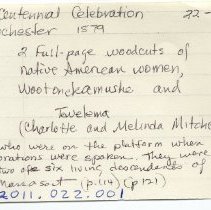 Centennial Celebration 22-
ochester 1879
2 Full-page woodcuts of
Native American women,
Wootonekamuske and
Tewelema
(Charlotte and Melinda Mitche
who were on the platform when
orations were spoken. They were
two of six living descendants of
Massasoit (p.114) (p121)
2011.022.001